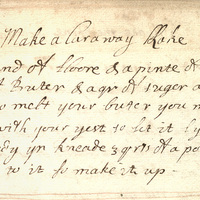 Make a Caraway Kake
nd of floore & a pinte of
t Buter & a qr of suger a
o melt your buter you m
with your yest so let it ly
dy yn kneade 3 qrs of a po
to it to make it up